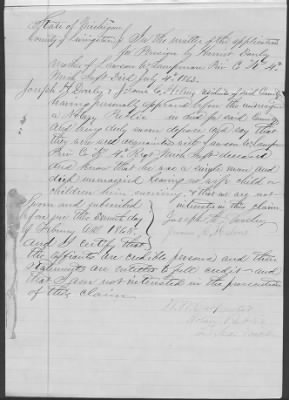 State of Michigan
County of Livingston } In the matter of the application
for Pension by Harriet Darly
Mother of Lawson W. Lampman Priv. Co "K" 4th
Mich Inft Died July 4th 1862.
Joseph H. Darly & James C. residents of said County
having personally appeared before the undersigned
a Notary Public in and for said County
and being duly sworn depose and say that
they were well acquainted with Lawson W. Lampman
Priv. Co K. 4th Regt Mich Inft deceased
and know that he was a single man and
died unmarried leaving no wife child or
children him surviving & that we are not
Sworn and subscribed } interested in this claim
before me this day } Joseph H.
of February A.D. 1865. }
and I certify that
the affiants are credible persons and their
statements are entitled to full credit and
that I am not interested in the prosecution
of this claim
Notary Public